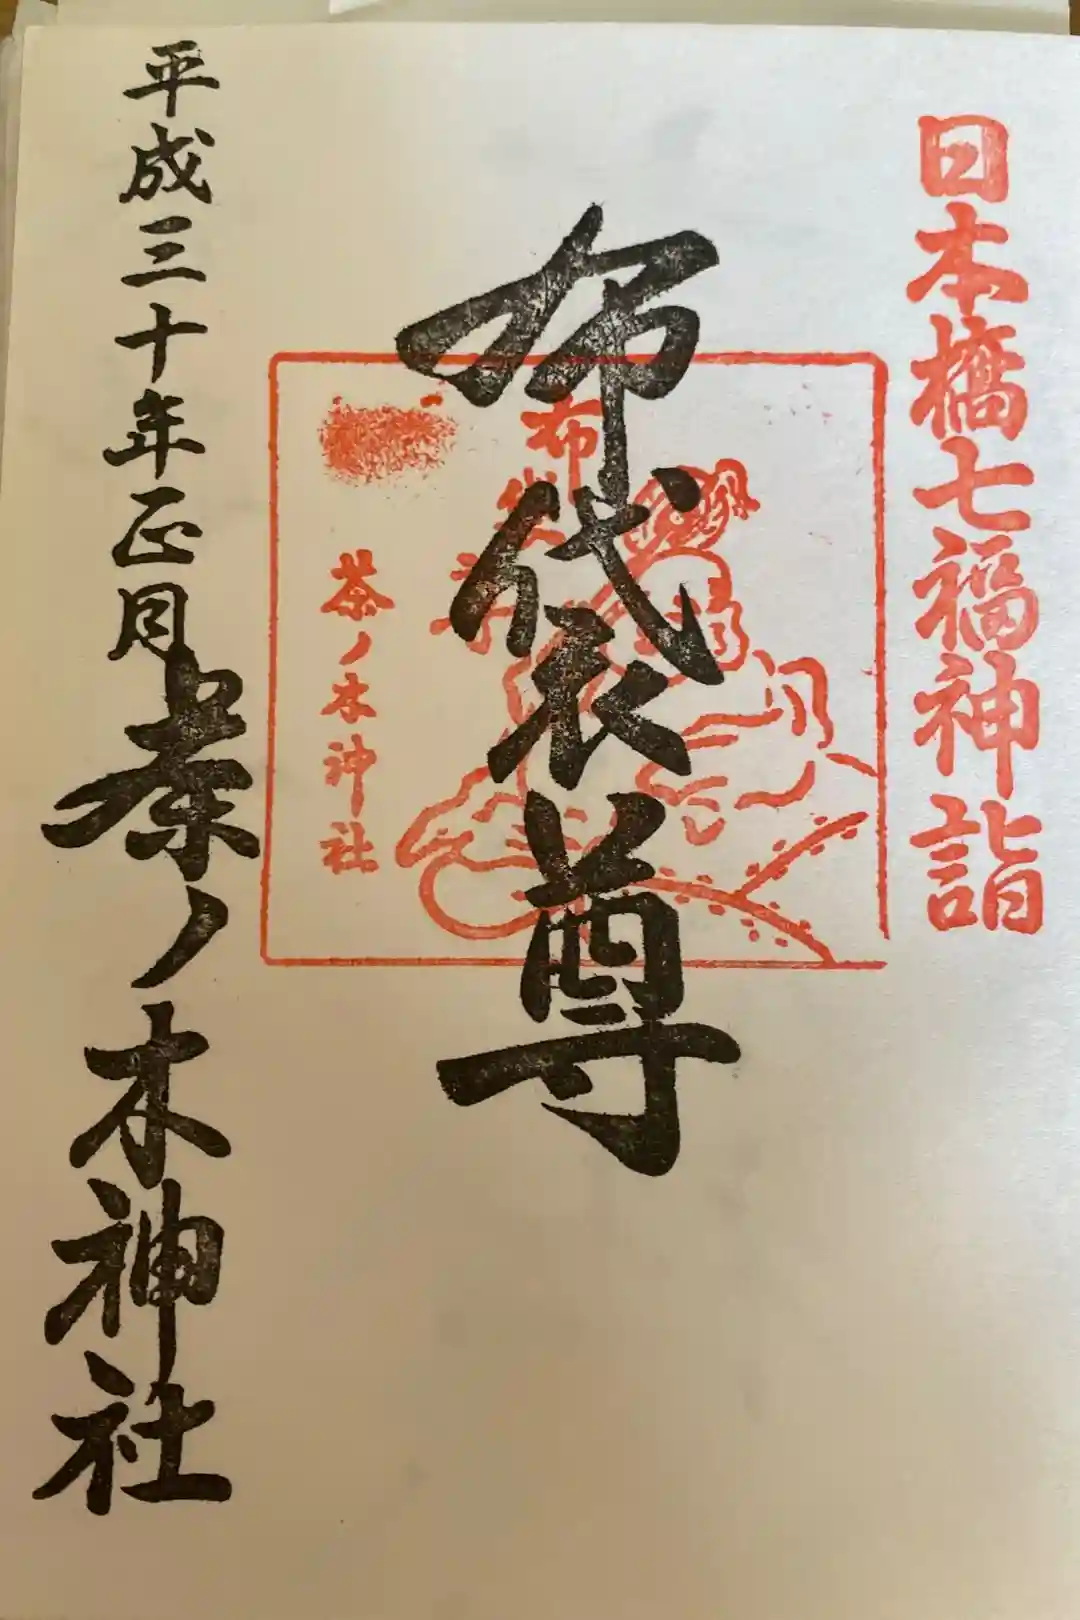 日本橋七福神詣
布袋尊
布袋尊
茶ノ木神社
平成三十年正月
茶ノ木神社